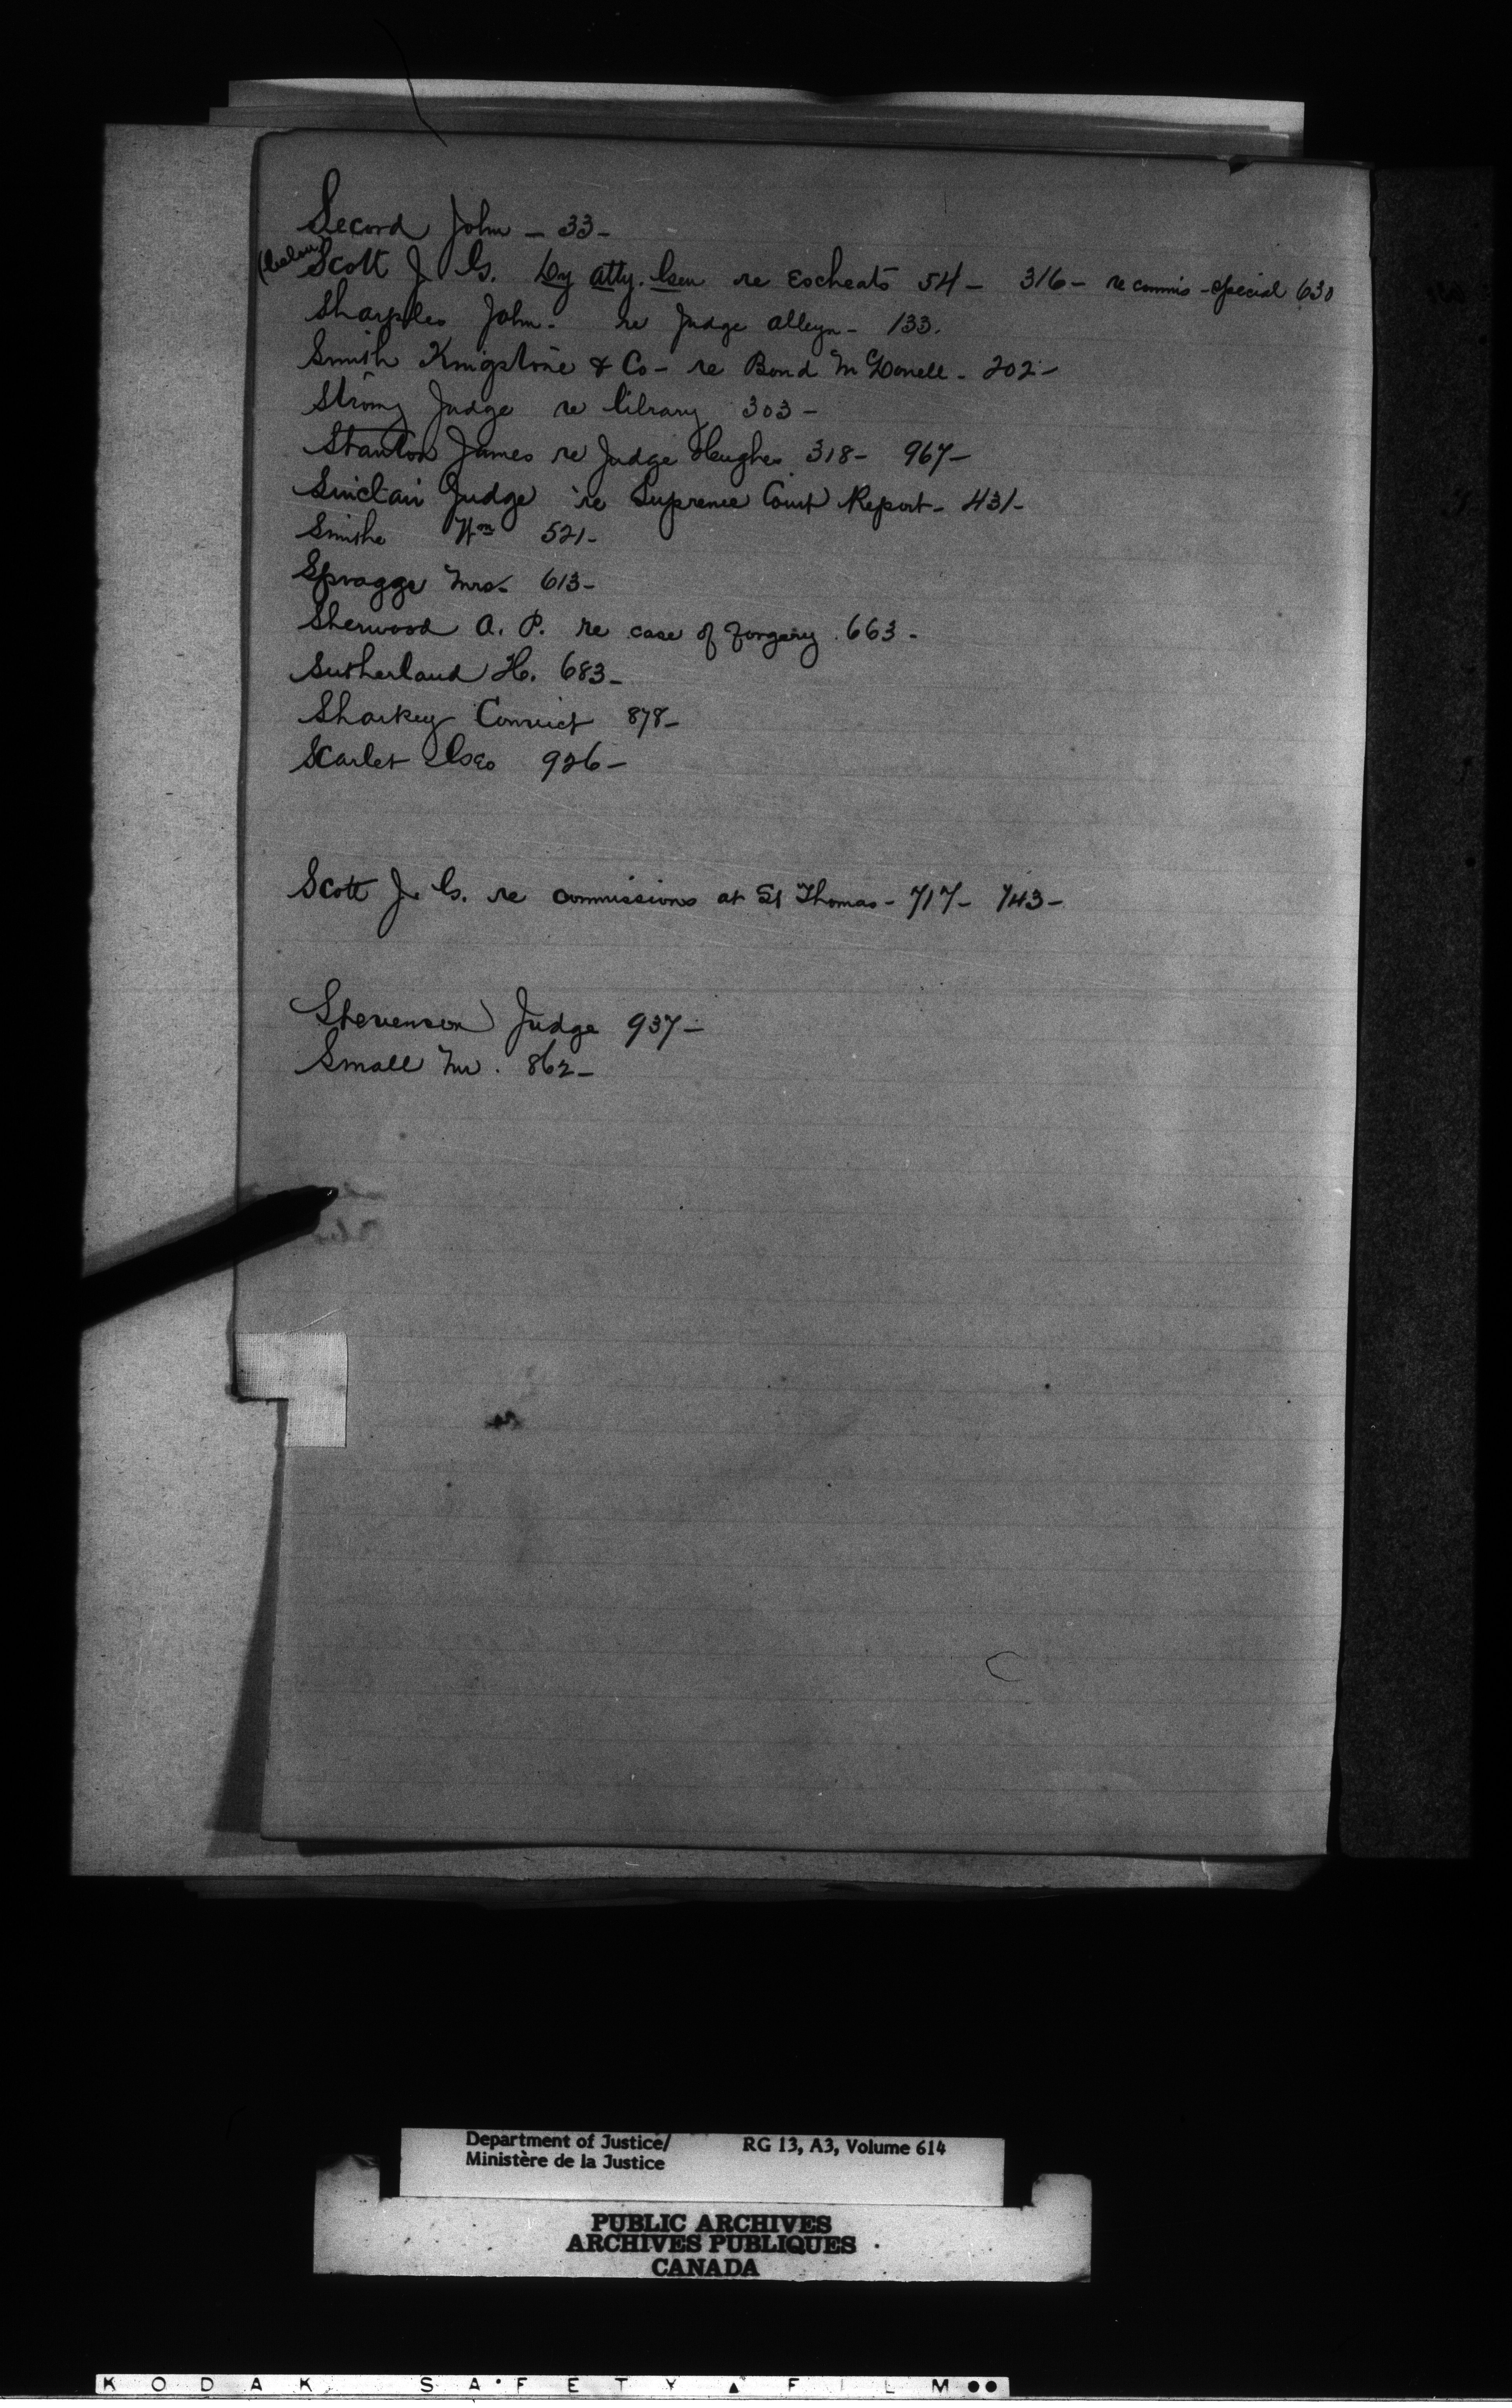 Second John - 33 -
(below)
Scott J. G. Dy Atty. Gen re Escheats 54 - 316 - re commis - special 630
Sharples John. re Judge Alleyn - 133.
Smith Kingstone & Co - re Bond McDonell - 202 -
Strong Judge re library 303 -
Stanton James re Judge Hughes 318 - 967 -
Sinclair Judge re Supreme Court Report - 431 -
Smithe Wm 521 -
Spragge Mrs. 613 -
Sherwood A. P. re case of forgery 663 -
Sutherland H. 683 -
Sharkey Convict 878 -
Scarlet Geo 926 -
Scott J. G. re commissions at St Thomas - 717 - 743 -
Stevenson Judge 937 -
Small Mr. 862 -
Department of Justice/ RG 13, A3, Volume 614
Ministère de la Justice
PUBLIC ARCHIVES
ARCHIVES PUBLIQUES
CANADA
KODAK SAFETY FILM